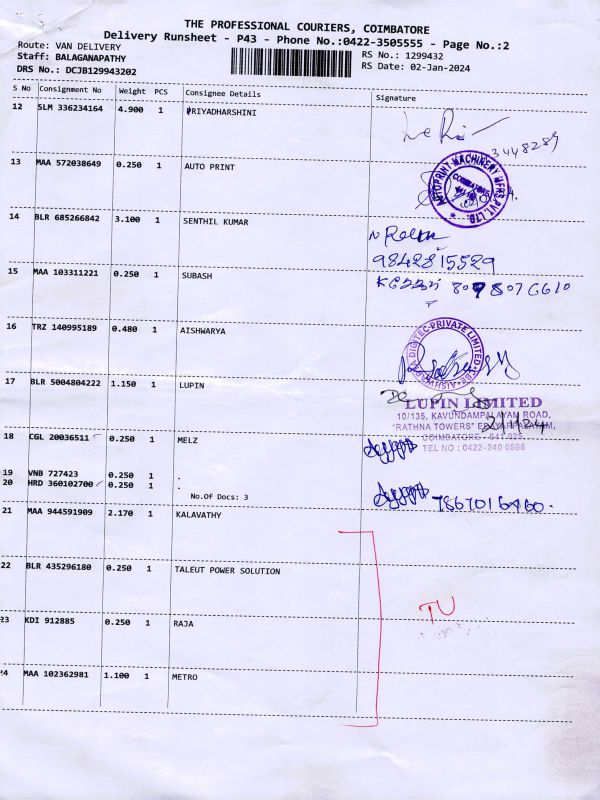 THE PROFESSIONAL COURIERS, COIMBATORE
Delivery Runsheet - P43 - Phone No.:0422-3505555 - Page No.:2
Route: VAN DELIVERY
RS No.: 1299432
Staff: BALAGANAPATHY
RS Date: 02-Jan-2024
DRS No.: DCJB129943202
S No Consignment No Weight PCS Consignee Details Signature
12 SLM 336234164 4.900 1 PRIYADHARSHINI
3448289
13 MAA 572038649 0.250 1 AUTO PRINT
AUTOPRINT MACHINERY MFRS PVT. LTD.
COIMBATORE
14 BLR 685266842 3.100 1 SENTHIL KUMAR
9842815529
15 MAA 103311221 0.250 1 SUBASH
8098076610
16 TRZ 140995189 0.480 1 AISHWARYA
17 BLR 5004804222 1.150 1 LUPIN
LUPIN LIMITED
10/135, KAVUNDAMPALAYAM ROAD,
"RATHNA TOWERS" EDAYARPALAYAM,
COIMBATORE - 641 025.
TEL NO : 0422-240 0596
2/1/24
18 CGL 20036511 0.250 1 MELZ
19 VNB 727423 0.250 1 .
20 HRD 360102700 0.250 1 .
No.Of Docs: 3
7867016460.
21 MAA 944591909 2.170 1 KALAVATHY
22 BLR 435296180 0.250 1 TALEUT POWER SOLUTION
TU
23 KDI 912885 0.250 1 RAJA
24 MAA 102362981 1.100 1 METRO